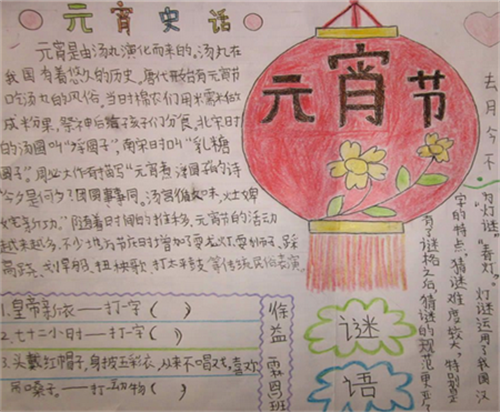 元宵史话
元宵是由汤丸演化而来的，汤丸在
我国有着悠久的历史，唐代开始有元宵节
吃汤丸的风俗，当时棉农们用米做
成粉果，祭神后孩子们分食，北宋时
的汤圆叫“浮圆子”，南宋时叫“乳糖
圆子”。周必大作有描写“元宵煮浮圆子的诗
今夕是何夕？团圆事事同。汤官
”随着日时间的推移，元宵节的活动
越来越多，不少地方节庆时增加了耍龙灯、耍狮子、踩
高跷、划旱船、扭秧歌、打太平鼓等传统民俗表演
1.皇帝新衣——打一字（ ）
2.七十二小时——打一字（ ）
3.头戴红帽子，身披五彩衣，从来不唱戏，喜欢
吊嗓子。——打一动物（ ）
元宵节
徐益
霖四班
谜
语
去月今不
为“灯谜”“春灯”。灯谜运用了我国汉
字的特点，猜谜难度较大，特别是
有了谜格之后，猜谜的规范更严